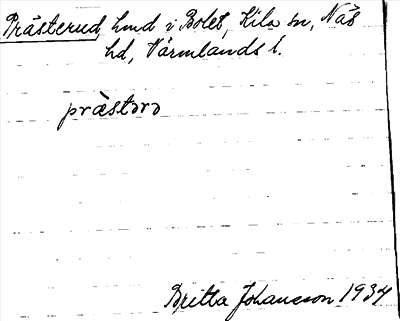 Prästerud, hmd i Bolet, Kila sn, Näs
hd, Värmlands l.
prὰstərə
Britta Johansson 1934